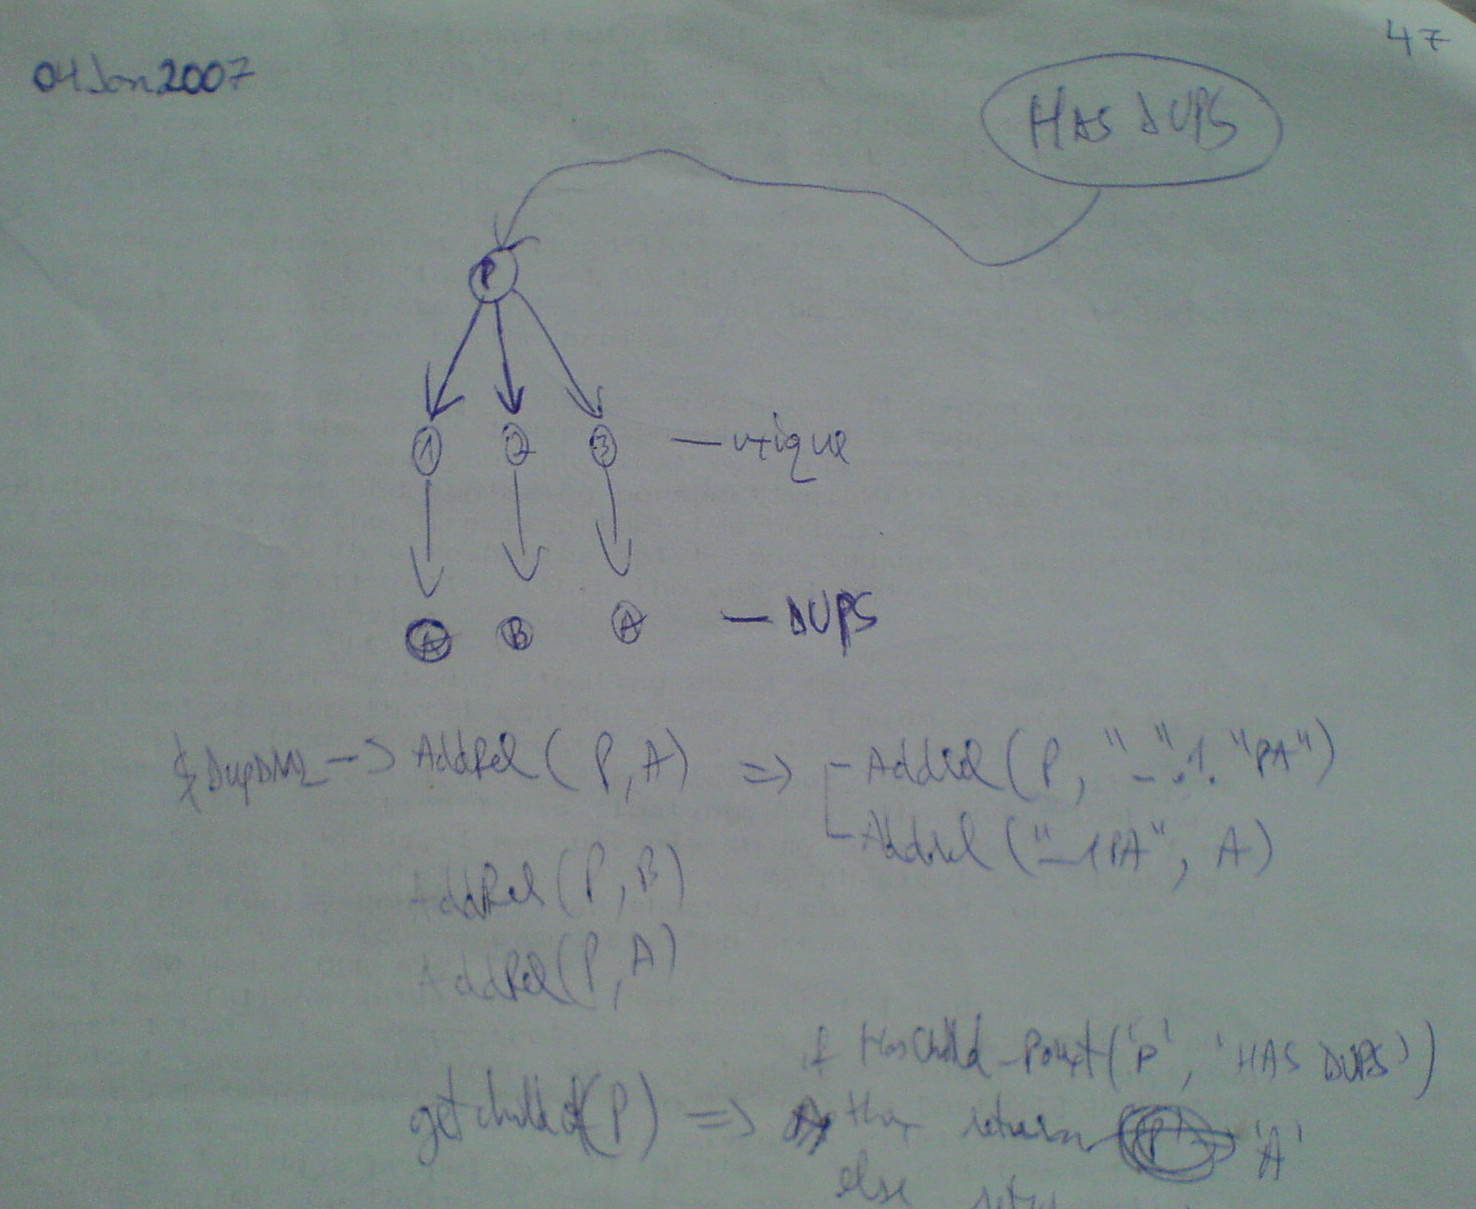 47
04Jan2007
HAS DUPS
P
1 2 3 — unique
A B A — DUPS
AddRel(P,A) => -AddRel(P, "_".1."PA")
-AddRel("_1PA", A)
AddRel(P,B)
AddRel(P,A)
if HasChild_Parent('P', 'HAS DUPS')
(P) => then return 'A'
else